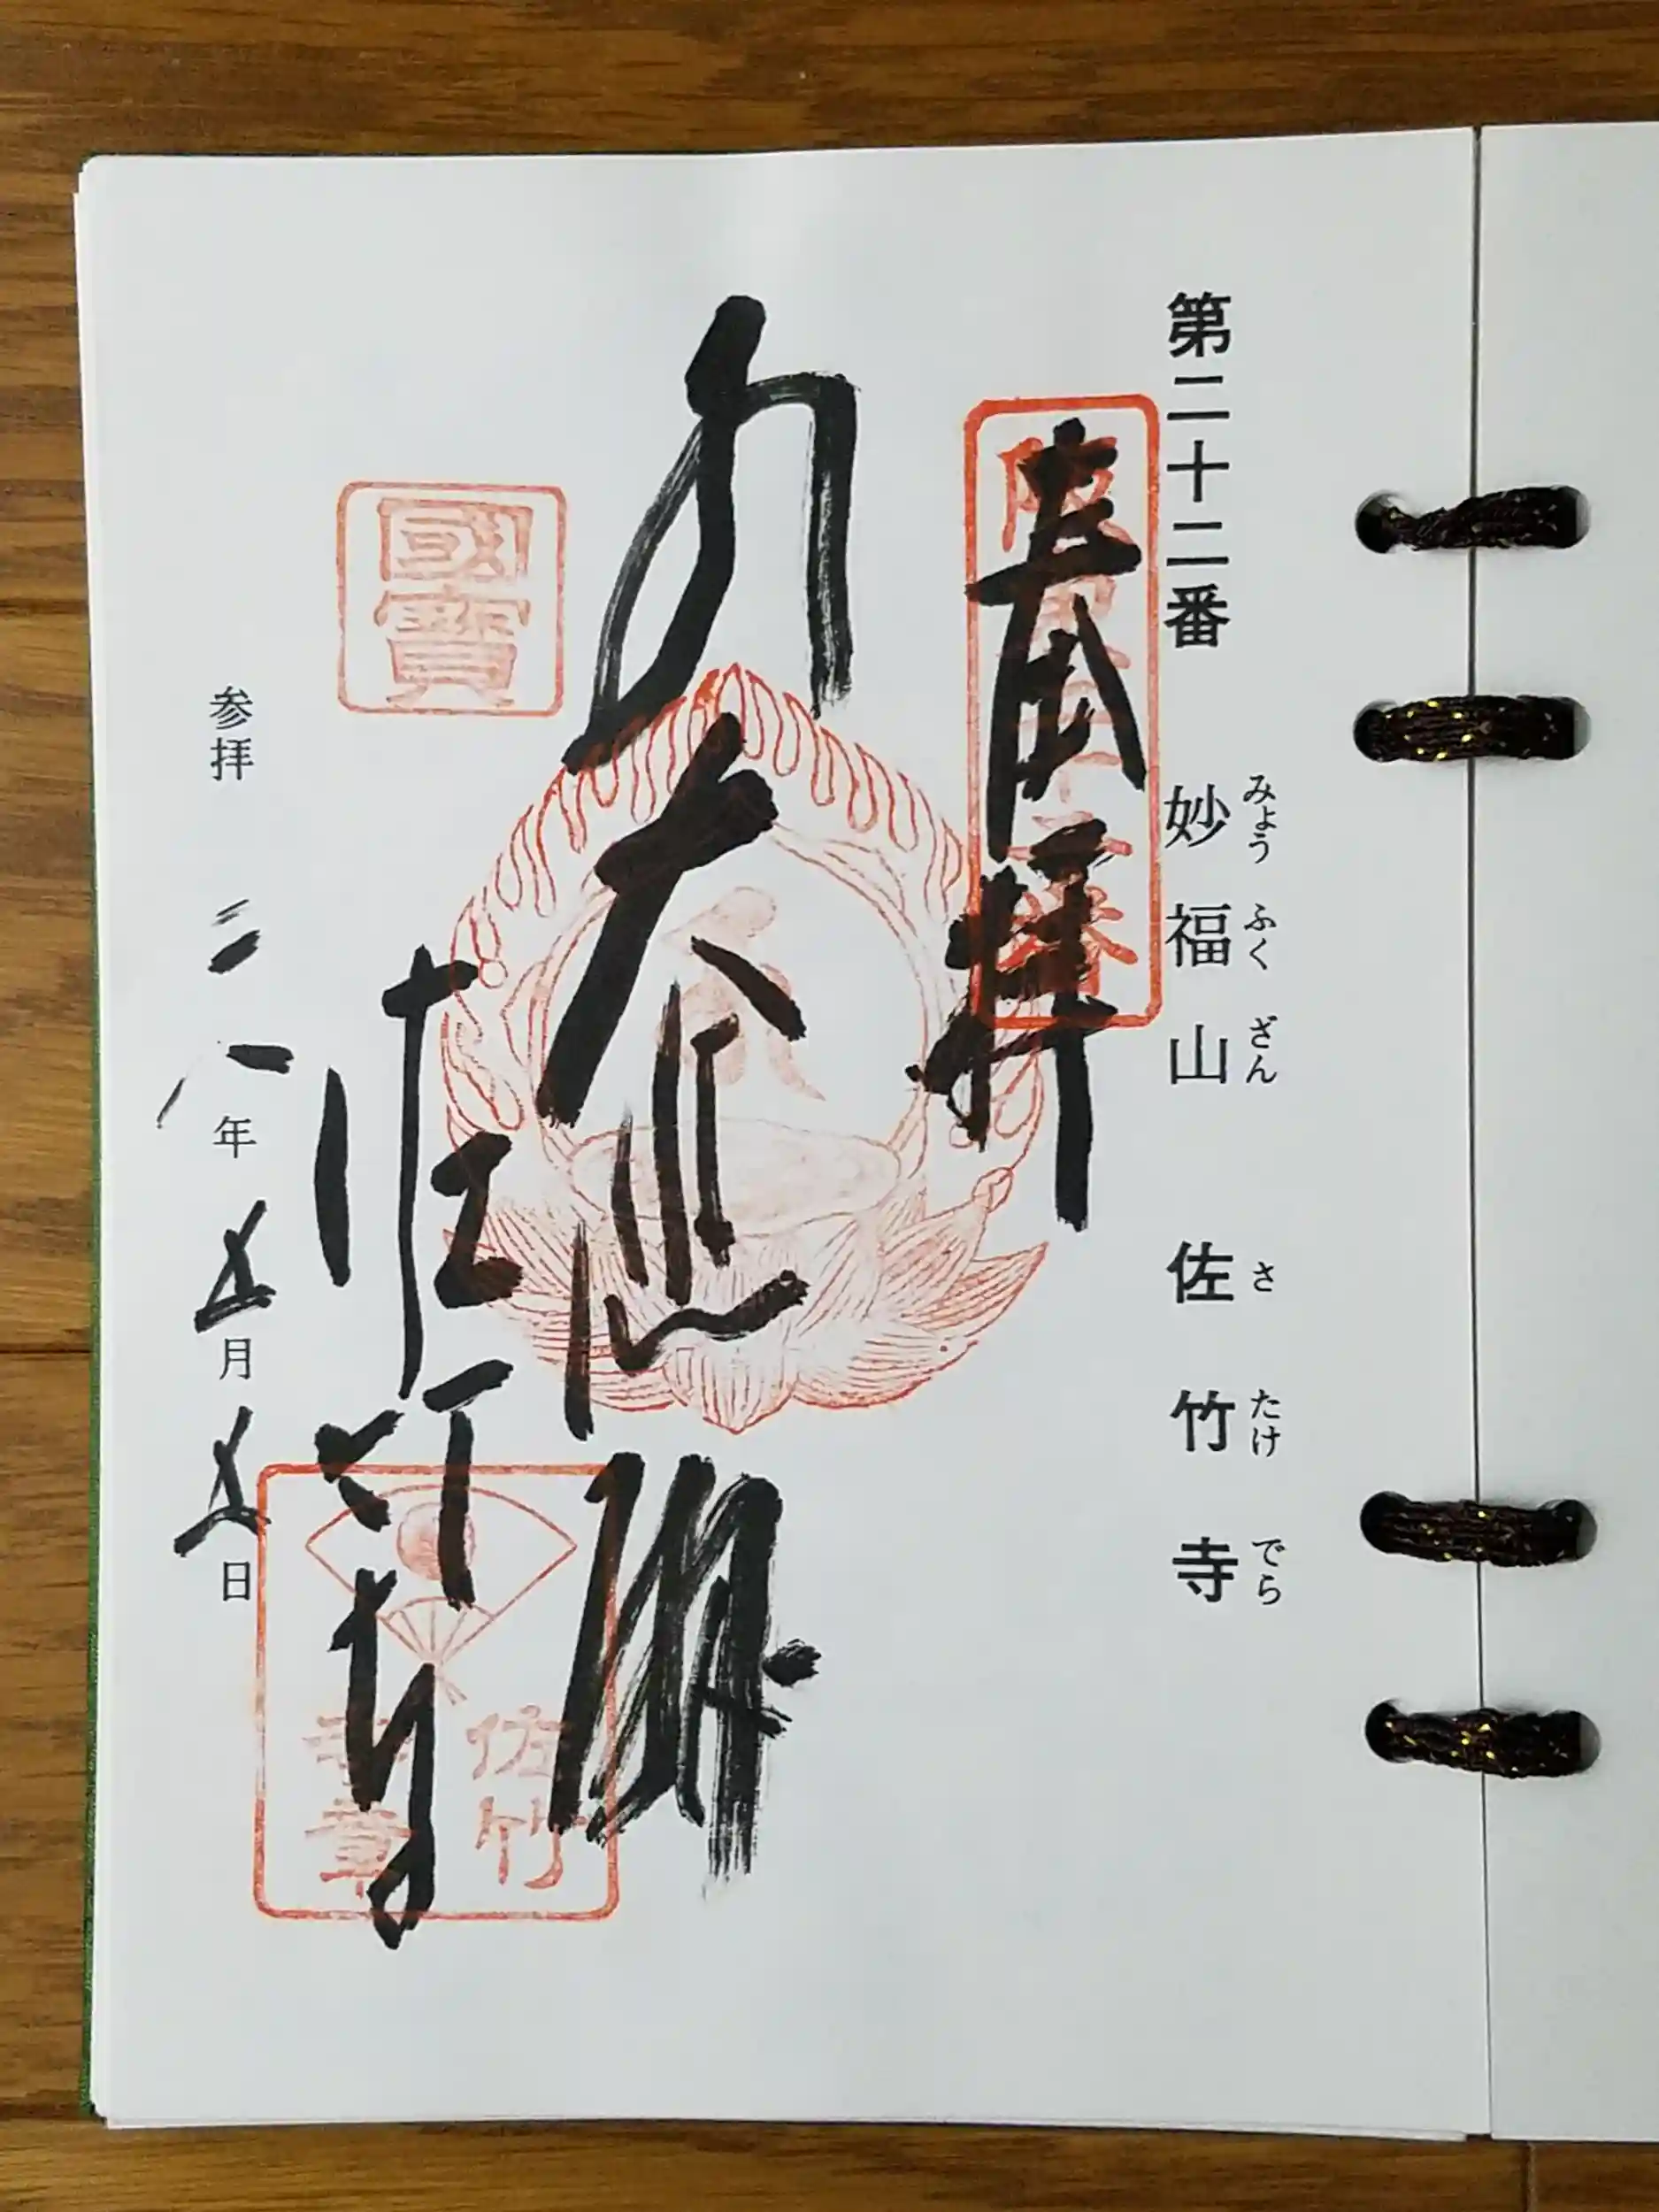 第二十二番 妙福山 佐竹寺
みょう ふく ざん さ たけ でら
奉拝
大悲
國寶
佐竹寺
佐竹
寺章
参拝 二八年 五月 五日